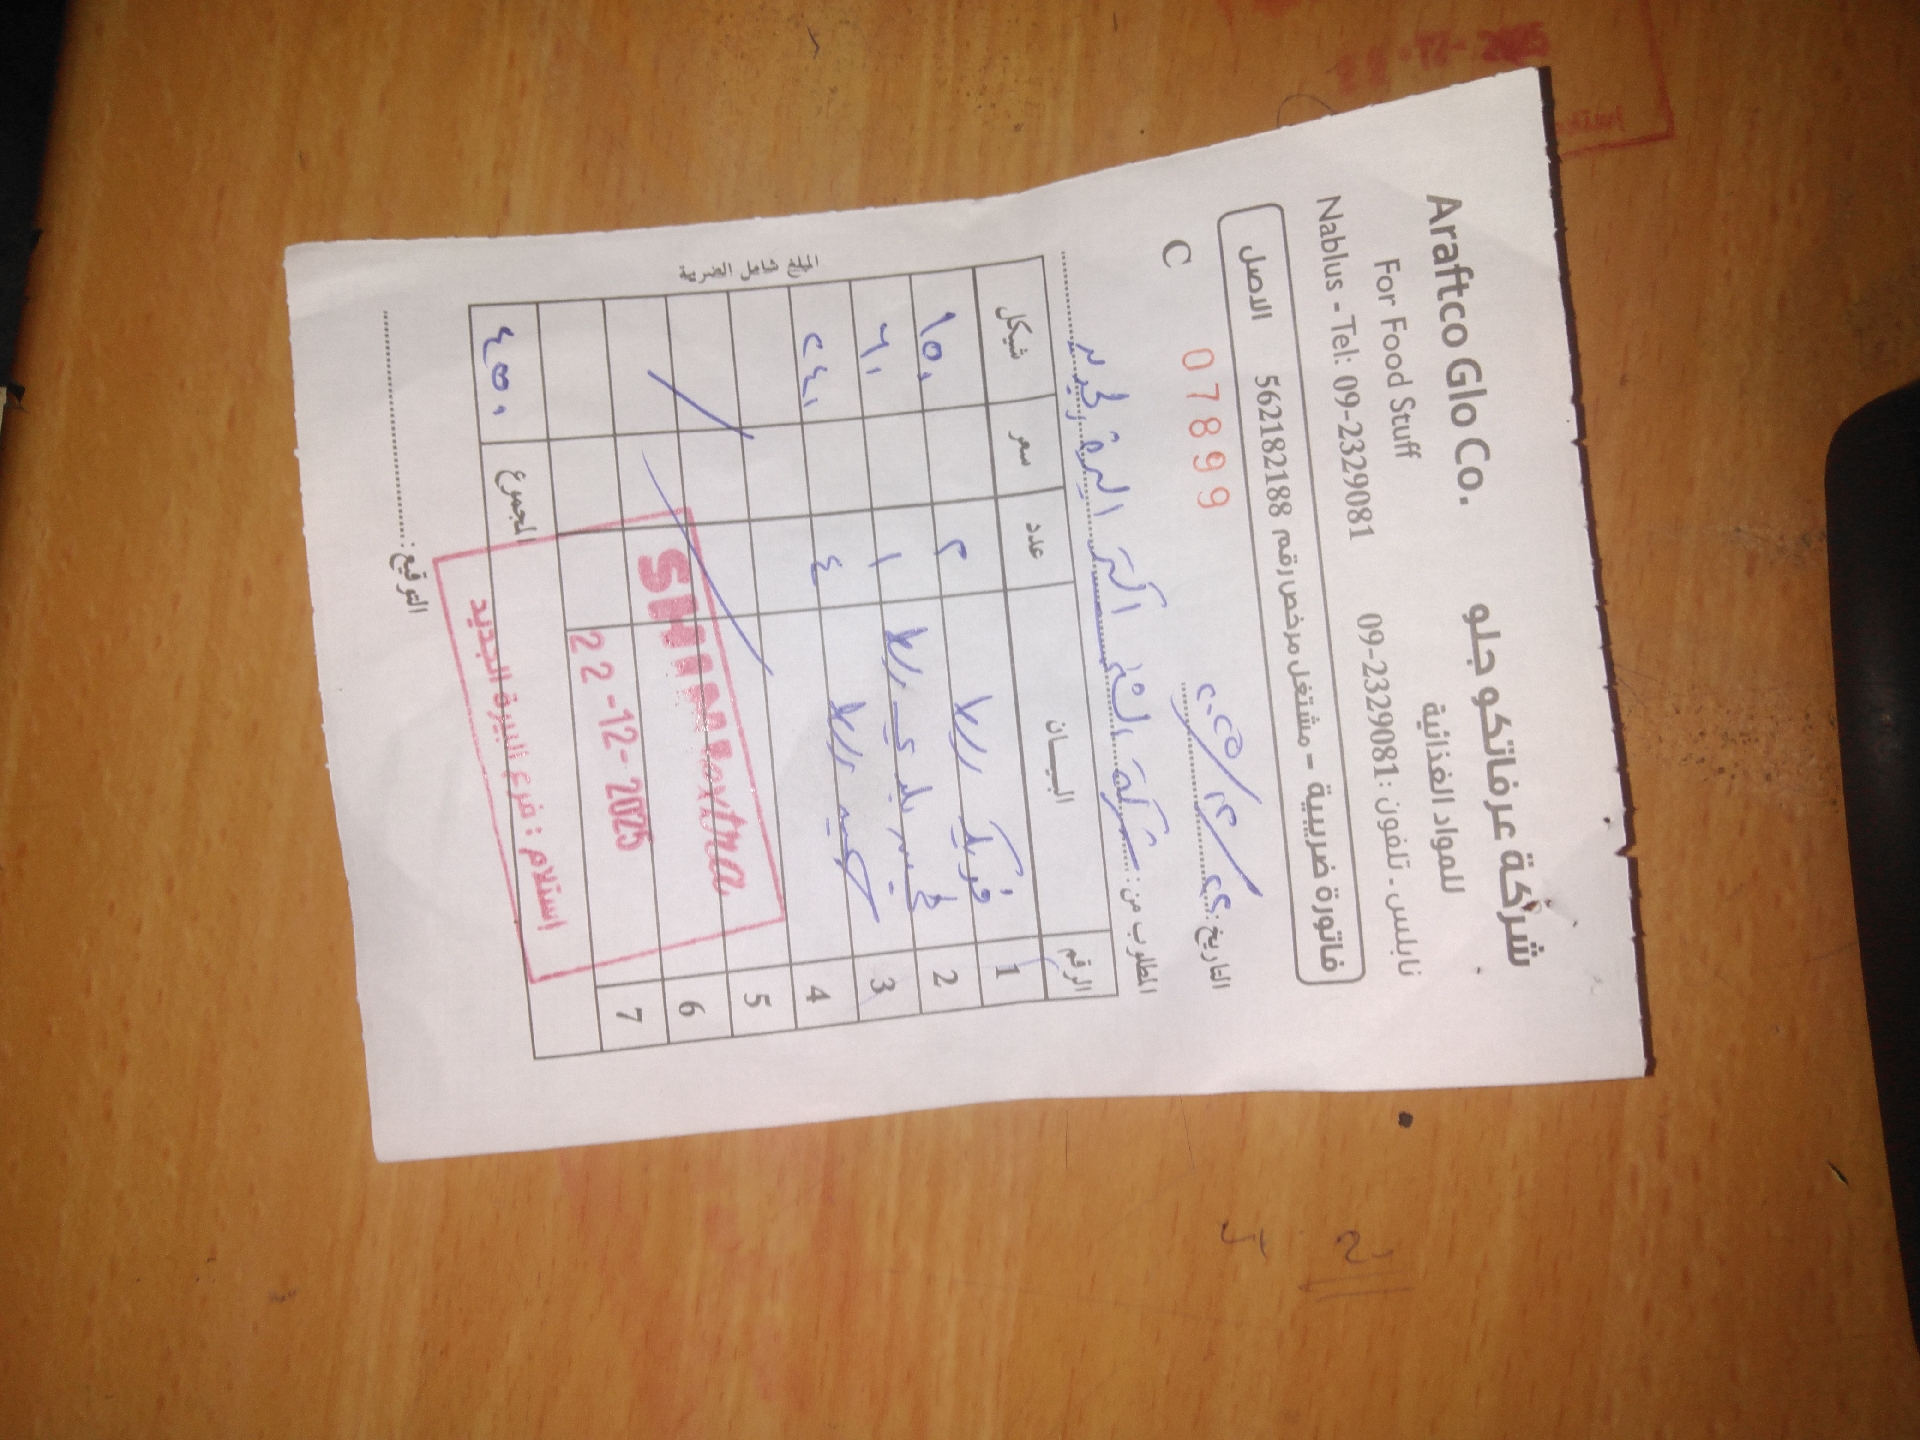 Araftco Glo Co.
شركة عرفاتكو جلو
For Food Stuff
للمواد الغذائية
Nablus - Tel: 09-2329081
نابلس - تلفون: 09-2329081
فاتورة ضريبية - مشتغل مرخص رقم 562182188 الاصل
C 07899
التاريخ: ٢٢/١٢/٢٠٢٥
المطلوب من: شركة البيرة
الرقم البيـــان عدد سعر شيكل
1 فريكة ٢ ١٥٠
2 بلدي ١ ٦٠
3 ٤ ٢٤٠
4
5
6
7
المجموع ٤٥٠
SHINI extra
22-12-2025
استلام : فرع البيرة الجديد
التوقيع:
22-12-2025